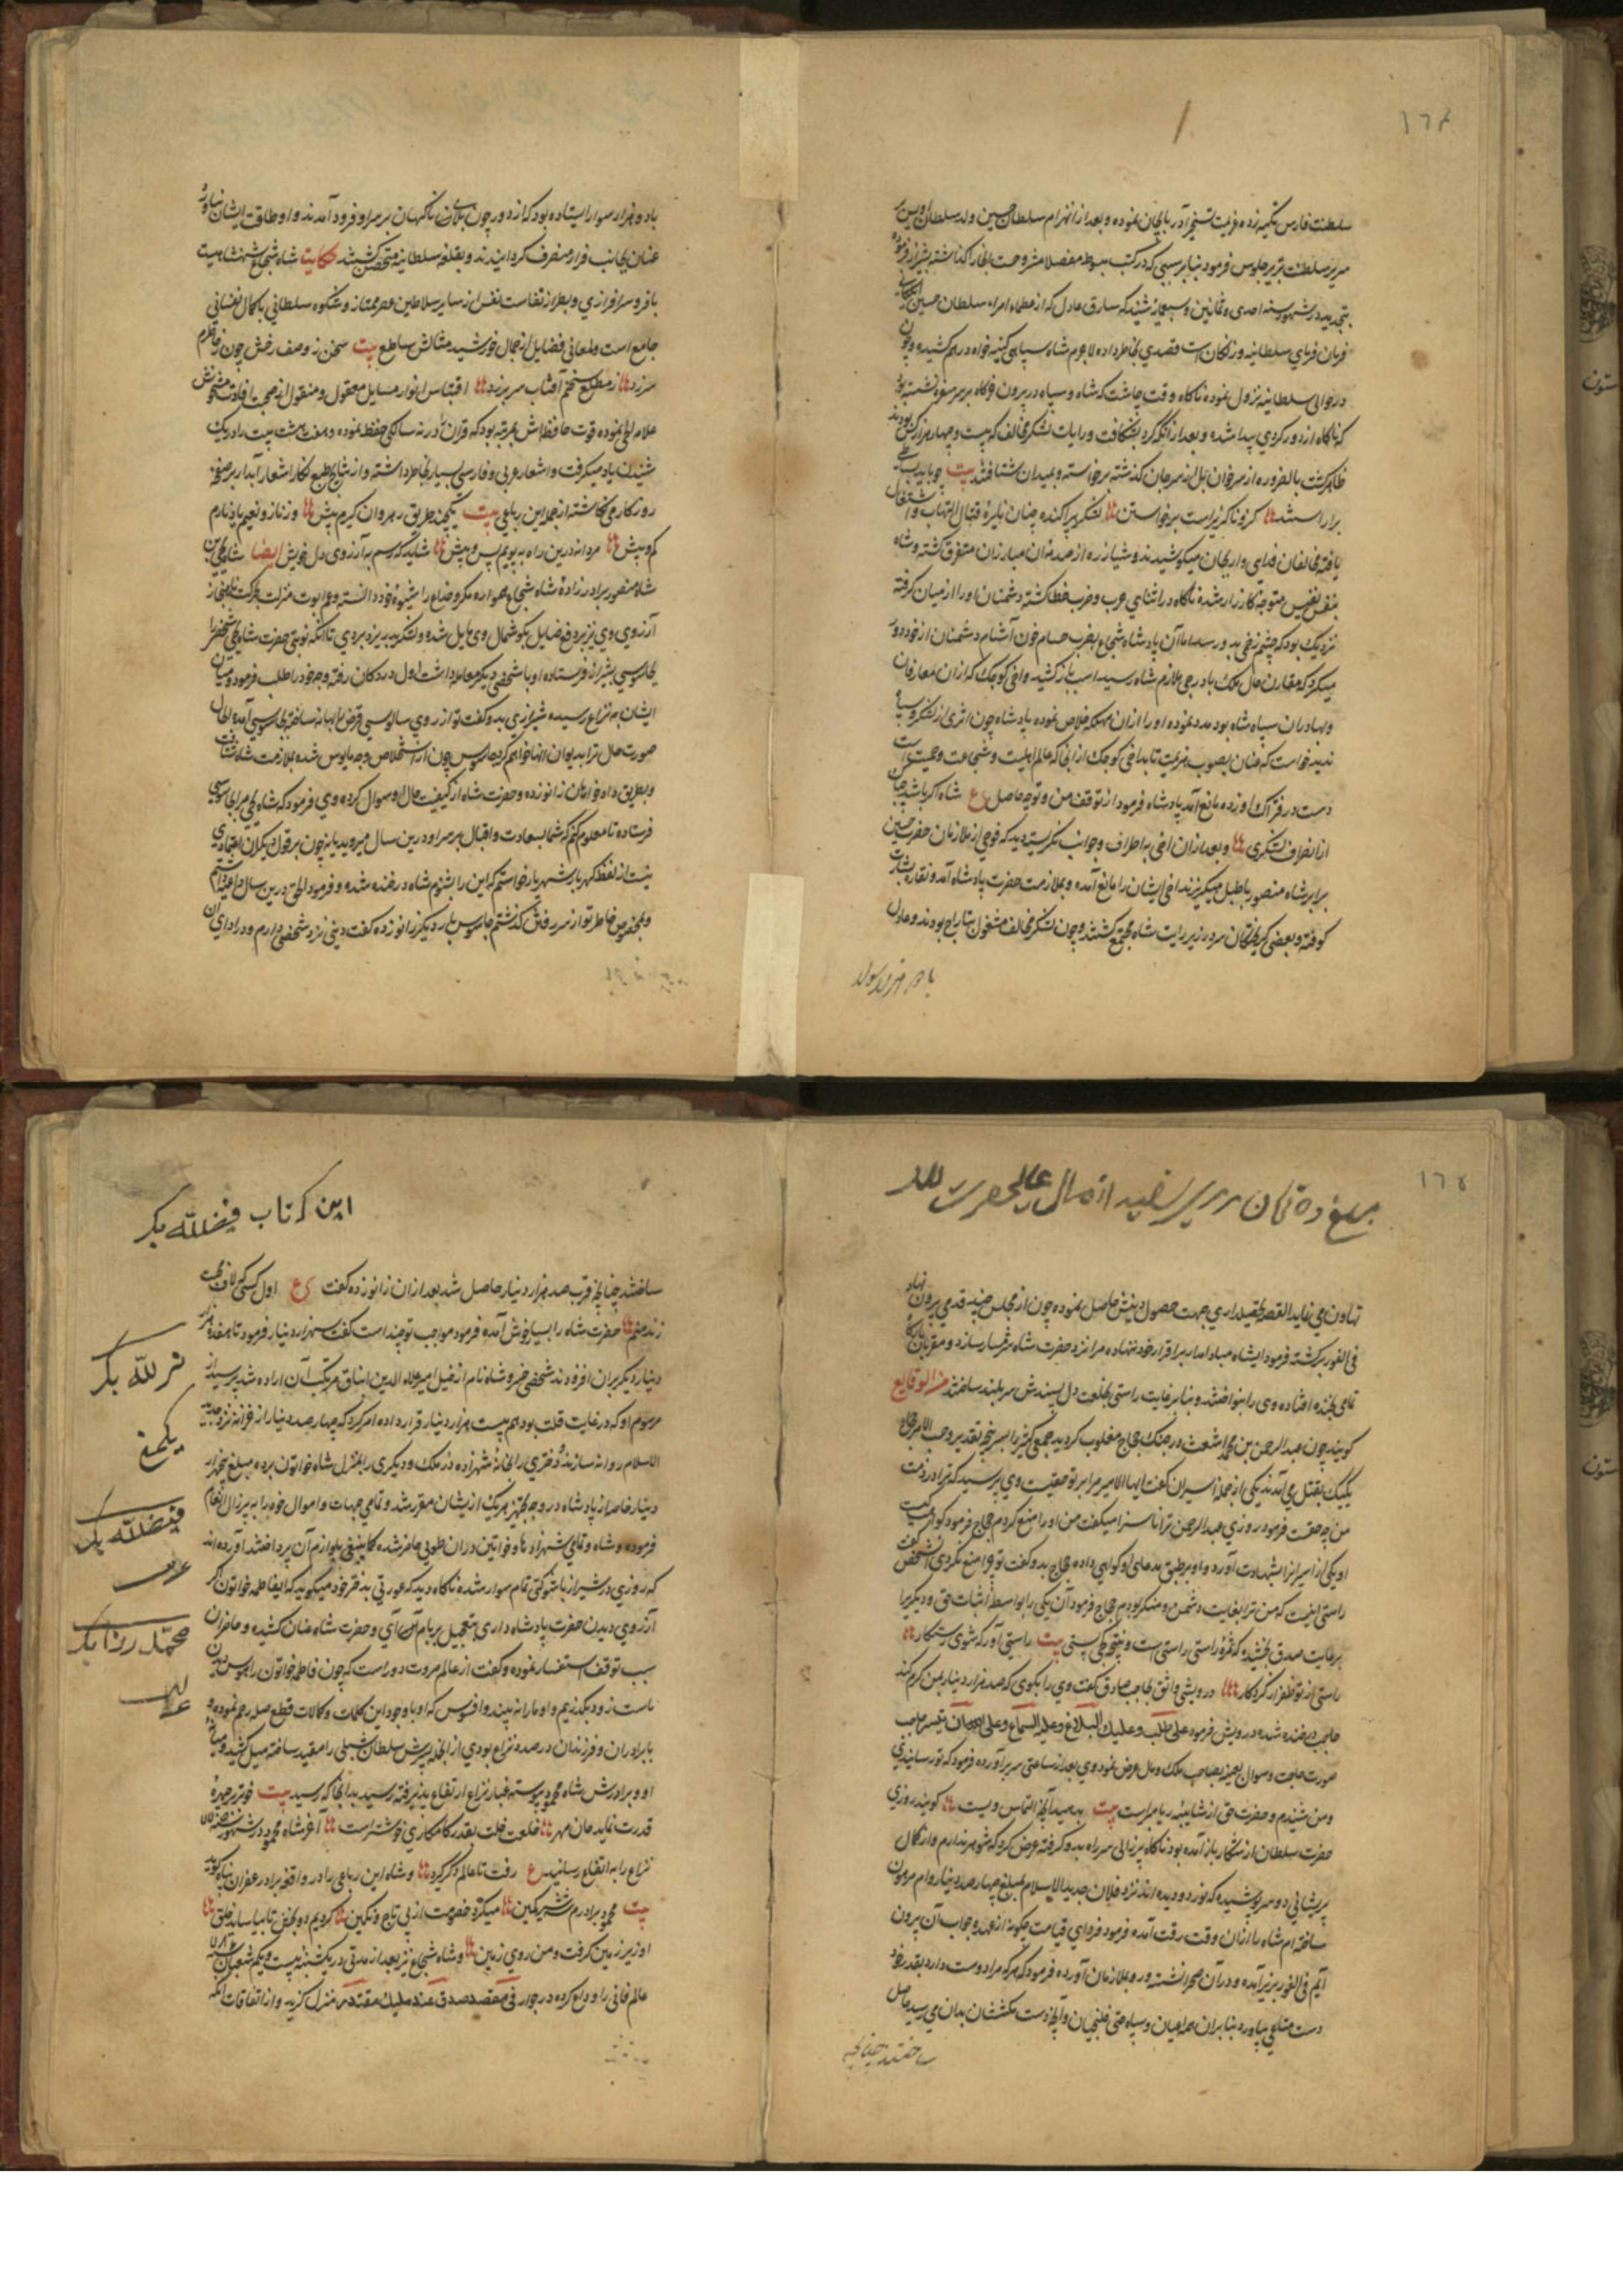 ١٦٤
سلطنت فارس تکیه زده عزیمت تسخیر آذربایجان نموده و بعد از انهزام سلطان حسین ولد سلطان اویس بر
سریر سلطنت تبریز جلوس فرمود بنابر سببی که در کتب مبسوطه مفصلا مشروحست آنجا را گذاشته بشیراز
بتجدید در شهور سنه احدی و ثمانین و سبعمائه شنید که سارق عادل که از عظماء امراء سلطان حسین
فرمان فرمای سلطانیه و زنکان است قصدی بخاطر داده لاجرم شاه سپاهی کینه خواه در هم کشیده و چون
در حوالی سلطانیه نزول نموده ناکاه وقت چاشت که شاه و سپاه در پرون خرکاه بر سر سفره نشسته
که ناکاه از دور کردی پیدا شده و بعد از آنکه گرد بشکافت و رایات لشکر مخالف که بیست و چهار هزار کس بودند
ظاهر گشت بالضروره از سر خوان بل از سر جان گذشته برخواسته و بمیدان شتافتند بیت چو باید
برآراستند کزو ناگزیر است برخواستن لشکر پراکنده چنان نایره قتال التهاب و اشتعال
یافته مخالفان فدایی وار بجان میکوشیدند و شیرازه از صدمه آن مبارزان متفرق گشته و شاه
بنفس نفیس متوجه کارزار شده ناکاه در اثنای حرب و ضرب خطا گشته دشمنان او را از میان گرفته
نزدیک بود که چشم زخمی بدو رسد اما آن پادشاه شجاع بضرب حسام خون آشام دشمنان از خود دور
میکرد که مقارن حال ملک بادرجی ملازم شاه رسید اسب باز کشید و اخی کوچک که از آن معارفان
و بهادران سپاه شاه بود مدد نموده او را از آن مهلکه خلاص نموده پادشاه چون اثری از لشکر و سپاه
ندید خواست که عنان بصوب هزیمت تابد اخی کوچک از آنجا که عالم اهلیت و شجاعت و حمیت
دست در فتراک او زده مانع آمد پادشاه فرمود از توقف من و تو چه حاصل ع شاه اگر باشد
از اطراف لشکری و بعد از آن اخی به اطراف و جوانب نگریست دید که فوجی از ملازمان حضرت حسین
برابر شاه منصور باطبل میگریزند اخی ایشان را مانع آمده و بملازمت حضرت پادشاه آمد و نقاره بشارت
کوفته و بعضی گریختگان سر در زیر رایت شاه مجتمع گشتند و چون لشکر مخالف مشغول بتاراج بودند و عادل
با دو هزار سوار
با دو هزار سوار ایستاده بود که از دور چون بلای ناگهان بر سر او فرود آمدند و او طاقت ایشان نیاورد
عنان بجانب فرار منصرف گردانیدند و بقلعه سلطانیه متحصن گشتند حکایت شاه شجاع شهنشاهیست
بافر و سرافرازی و بطراز نفاست نفس از سایر سلاطین عصر ممتاز و شکوه سلطانی با کمال نفسانی
جامع است و لمعانی فضایل از جمال خورشید مثالش ساطع بیت سخن ز وصف رخش چون ز خاطرم
سر زد ز مطلع سخنم آفتاب سر بر زد اقتباس انوار مسایل معقول و منقول از صحبت افادت
علامه نموده قوت حافظه اش بمرتبه بود که قرآن را در نه سالگی حفظ نموده و هفت هشت بیت را در یک
شنیدن یاد میگرفت و اشعار عربی و فارسی بسیار بخاطر داشته و از نتایج طبع نگار اشعار آبدار بر صفحه
روزگار می نگاشته از جمله این رباعی بیت یکچند طریق رهروان گیرم پیش وز ناز و نعیم یاد نارم
کم و بیش مردانه درین راه بپویم پس و پیش شاید که رسم به آرزوی دل خویش ایضا شاه یحیی بن
شاه منصور برادرزاده شاه شجاع همواره مکر و خداع را شیوه خود دانسته
آرزوی وی
بجاسوسی بشیراز فرستاده او با شخصی دیگر معامله داشت اول در دکان رفته وجه خود را طلب فرمود و میان
ایشان به نزاع رسیده شیرازی بدو گفت تو از روی سالوسی قرض را بهانه ساخته بجاسوسی آمده الحال
صورت حال ترا بدیوان انها خواهم کرد جاسوس چون از استخلاص وجه مایوس شده بملازمت شاه شتافت
و بطریق داد خواهان زانو زده و حضرت شاه از کیفیت حال او سوال کرده وی فرمود که شاه یحیی مرا بجاسوسی
فرستاده تا معلوم کنم که شما بسعادت و اقبال بر سر او درین سال میروید یا نه چون بر قول دیگران اعتمادی
نیست از لفظ گهربار شهریار خواستم که این را بشنوم شاه در خنده شده و فرمود الحق درین سال داعیه داشتم
و بمحض خاطر تو از سر رفتن گذشتم جاسوس بار دیگر زانو زده گفت دینی نزد شخصی دارم و در ادای آن
١٦٥
تهاون می نماید القصه تحصیلداری جهت حصول دینش حاصل نموده چون از مجلس چند قدمی پرون نهاد
فی الفور برگشته فرمود ای شاه مبادا مدار بر اقرار خود ننهاده مرا نزد حضرت شاه شرمسار سازد و مقربان
تمامی بخنده افتاده وی را بنواختند و بنابر غایت راستی بخلعت دل پسندش سربلند ساختند من الوقایع
گویند چون عبد الرحمن بن محمد اشعث در جنگ حجاج مغلوب گردید جمعی کثیر اسیر پنجه تقدیر و حسب الامر حجاج
یک یک بقتل می آمدند یکی از جمله اسیران گفت ایها الامیر مرا بر تو حقیست وی پرسید که ترا در ذمت
من چه حقست فرمود روزی عبد الرحمن ترا ناسزا میگفت من او را منع کردم حجاج فرمود گواه کیست
او یکی از اسیران را بشهادت آورد و او بر طبق مدعای او گواهی داده حجاج بدو گفت تو چرا منع نکردی آن شخص گفت
راستی اینست که من ترا بغایت دشمن و منکر بودم حجاج فرمود آن یکی را بواسطه اثبات حق و دیگری را
برعایت صدق بخشید که ثمره راستی راستی است و نتیجه کجی پستی بیت راستی آور که شوی رستگار
راستی از تو ظفر از کردگار درویشی واثق بحاجب صادق گفت وی را بگوی که صد هزار دینار بمن کرم کند
حاجب در خنده شده درویش فرمود علی طلب و علیک البلاغ و علیه السماع
صورت حاجت و سوال بعینه بصاحب ملک و مال عرض نمود وی بعد از ساعتی سر برآورده فرمود که تو رسانیدی
و من شنیدم و حضرت حق از شایبه ریا مبراست بیت بدهید آنچه التماس ویست گویند روزی
حضرت سلطان از شکار باز آمده بود ناکاه پیرزالی سر راه بدو گرفته عرض کرد که شوهر ندارم و از کمال
پریشانی دو سر پوشیده که نور دو دیده اند نزد فلان جدید الاسلام بمبلغ چهار صد دینار وام مرهون
ساخته ام شاه را از آن وقت رقت آمده فرمود فردای قیامت چگونه از عهده جواب آن پرون
آیم فی الفور بزیر آمده و در آن صحرا نشسته و رو بملازمان آورده فرمود که هر که مرا دوست دارد بقدر خود
دست متاعی بیاورد بنابر آن همه اعیان و سپاه حتی قلیچیان و آنچه دست مکنتشان بدان می رسید حاصل
ساختند چنانچه
این کتاب فیض الله بک
ساختند چنانچه قرب صد هزار دینار حاصل شد بعد از آن زانو زده گفت ع اول کسی که لاف محبت
زند منم حضرت شاه را بسیار خوش آمده فرمود مواجب تو چند است گفت سه هزار دینار فرمود تا هفده هزار
دینار دیگر بر آن افزودند شخصی خسرو شاه نام از خیل امیر علاء الدین ایناق مرتکب آن اراده شد پرسید از
مرسوم او که در غایت قلت بود هم بیست هزار دینار قرار داده امر کرد که چهار صد دینار از خزانه نزد جدید
الاسلام روانه سازند و دختری را بخانه شهزاده در ملک و دیگری را بمنزل شاه خاتون برده مبلغ پنج هزار
دینار خاصه از پادشاه در وجه تجهیز هر یک از ایشان مقرر شد و تمامی جهات و اموال خود را به پیرزال انعام
فرموده و شاه و تمامی شهزادها و خواتین در آن طوی حاضر شده کما ینبغی بلوازم آن پرداختند آورده اند
که روزی در شیراز با شوکتی تمام سوار شده ناکاه دید که عورتی بدختر خود میگوید که ای فاطمه خاتون اگر
آرزوی دیدن حضرت پادشاه داری بتعجیل بر بام آی و حضرت شاه عنان کشیده و حاضران
سبب توقف استفسار نموده و گفت از عالم مروت دور است که چون فاطمه خاتون را هوس دیدن
ماست زود بگذریم و او ما را نبیند و افسوس که او با وجود این کلمات و کمالات قطع صله رحم نموده و
با برادران و فرزندان در صدد نزاع بودی از آنجمله پسرش سلطان شبلی را مقید ساخته میل کشید و میان
او و برادرش شاه محمود پیوسته غبار نزاع ارتفاع پذیرفته رسید بدانجا که رسید بیت
آخر شاه محمود در شهور سنه
نزاع را به انقطاع رسانید ع رفت تا عالم دگر گیرد و شاه این رباعی را در واقعه برادر
بیت محمود برادرم شه شیر کمین میکرد خصومت از پی تاج و نگین کردیم دو بخش تا بیاساید خلق
او زیر زمین گرفت و من روی زمین و شاه شجاع نیز بعد از مدتی در یکشنبه بیست و یکم شعبان سنه ٧٨٦
عالم فانی را وداع کرده در جوار فی مقعد صدق عند ملیک مقتدر منزل گزید و از اتفاقات آنکه
نصر الله بک
فیض الله بک
محمد رضا بک